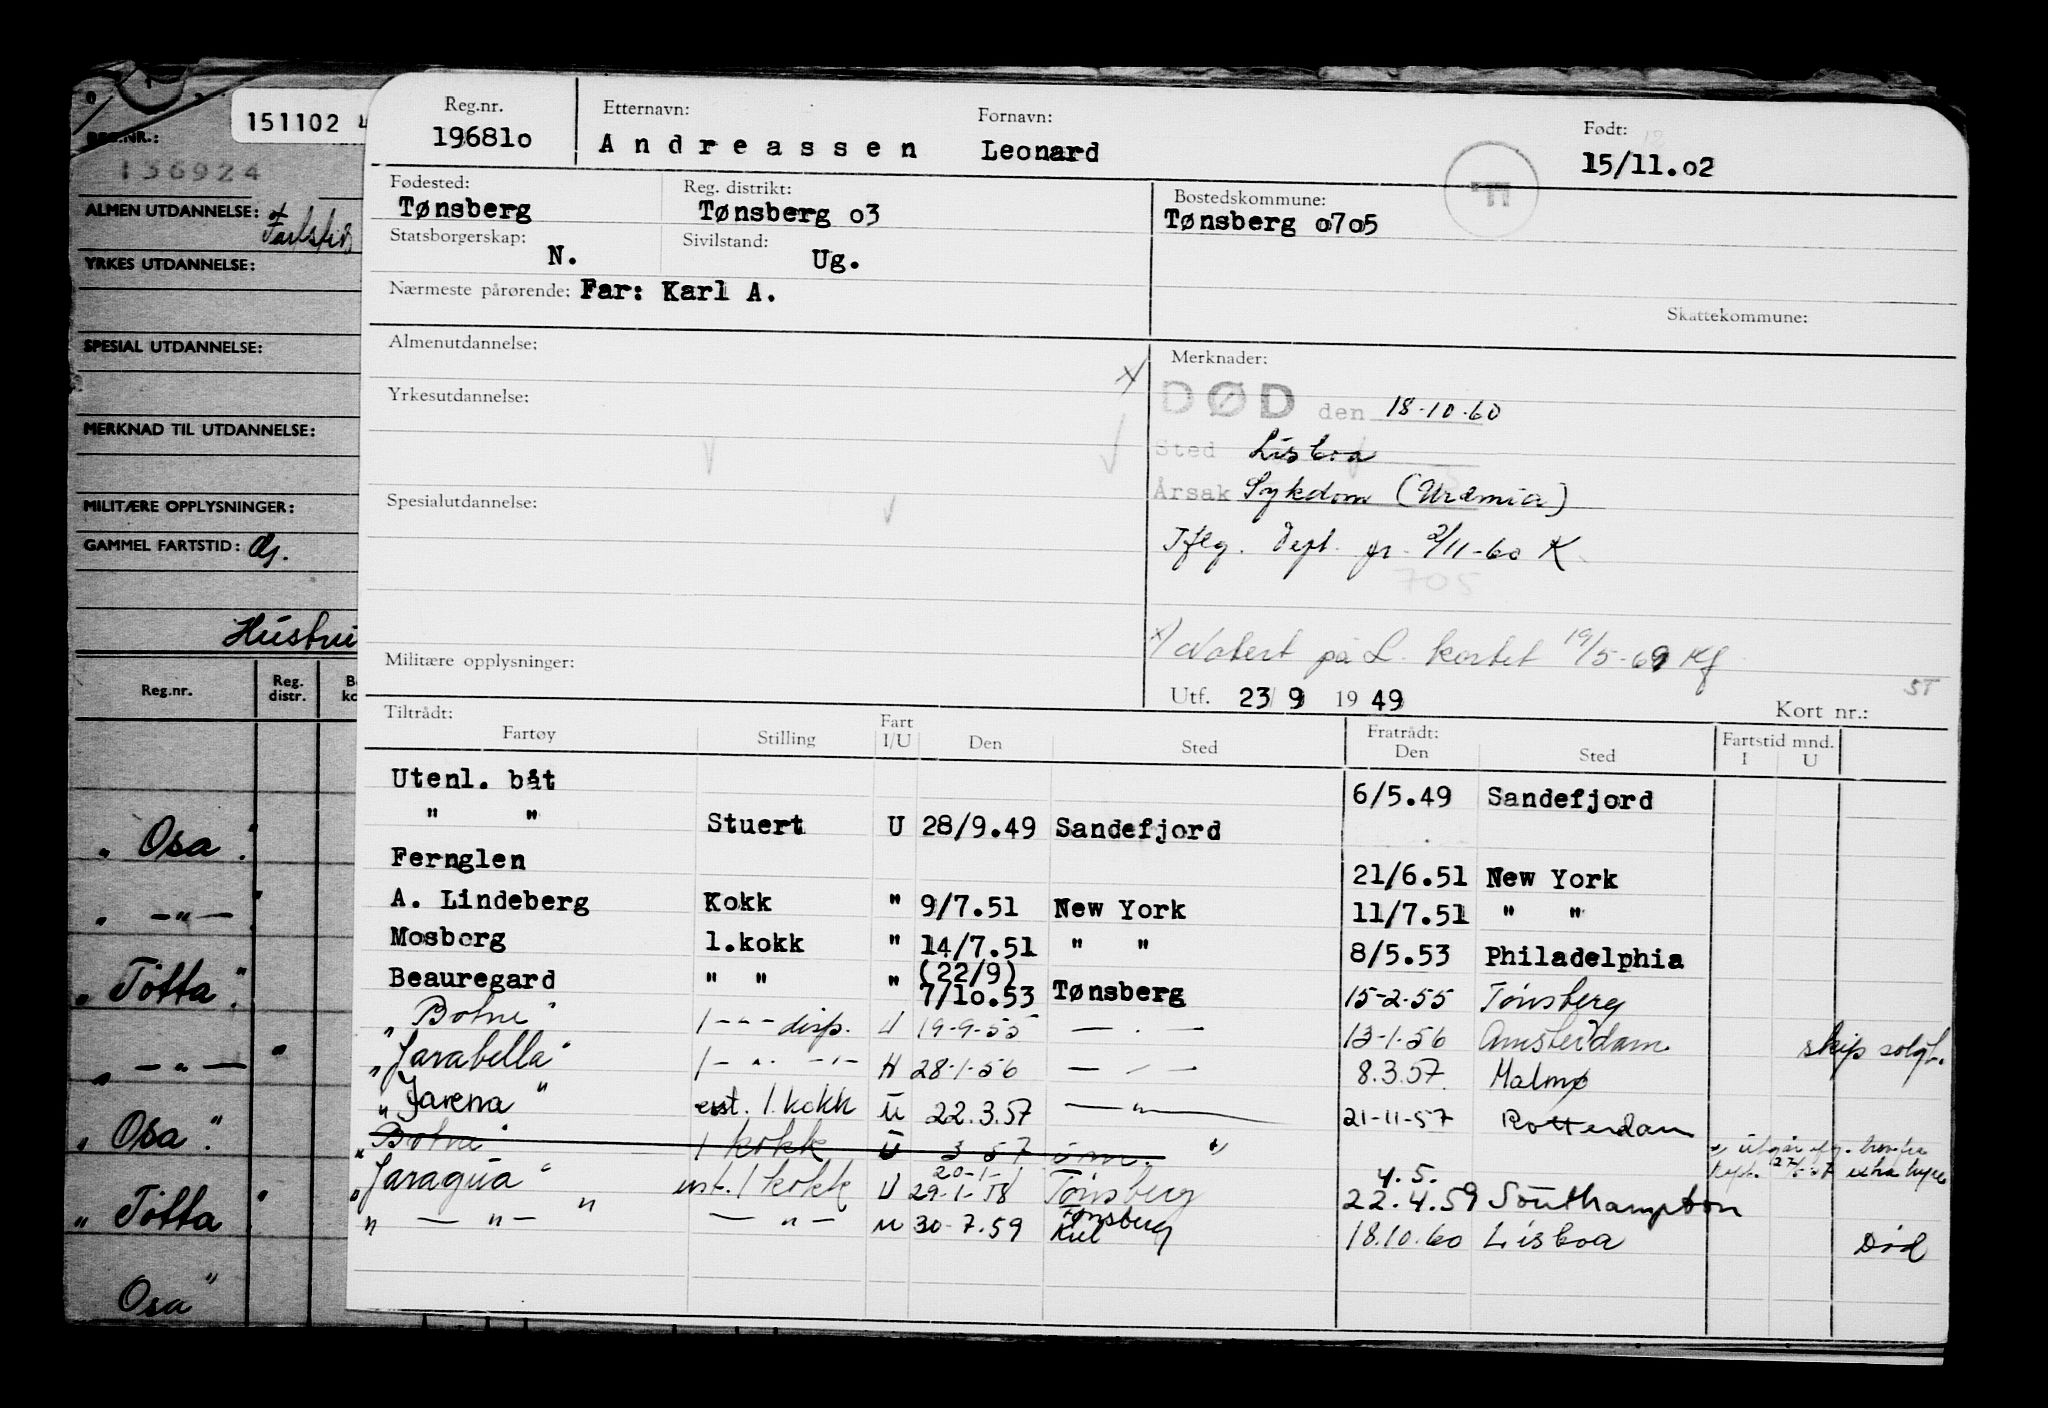 REG.NR.:
136924
151102 4
ALMEN UTDANNELSE:
YRKES UTDANNELSE:
SPESIAL UTDANNELSE:
MERKNAD TIL UTDANNELSE:
MILITÆRE OPPLYSNINGER:
GAMMEL FARTSTID:
Reg.nr. Reg. distr.
" Osa "
" —"— "
" Totta "
" —"— "
" Osa "
" Totta "
Osa "
Reg.nr. Etternavn: Fornavn: Født:
196810 Andreassen Leonard 15/11.02
Fødested: Reg. distrikt: Bostedskommune:
Tønsberg Tønsberg 03 Tønsberg 0705
Statsborgerskap: Sivilstand:
N. Ug.
Nærmeste pårørende: Far: Karl A.
Skattekommune:
Almenutdannelse:
Yrkesutdannelse:
Spesialutdannelse:
Militære opplysninger:
Merknader:
DØD den 18-10-60
Sted Lisboa
Årsak Sykdom (Uremia)
Iflg. Dept. gr. 2/11-60 K
705
x) Notert på L. kortet 19/5-69
ST
Utf. 23/9 1949 Kort nr.:
Tiltrådt: Fratrådt: Fartstid mnd.
Fartøy Stilling Fart I/U Den Sted Den Sted I U
Utenl. båt 6/5.49 Sandefjord
" " Stuert U 28/9.49 Sandefjord
Fernglen 21/6.51 New York
A. Lindeberg Kokk " 9/7.51 New York 11/7.51 " "
Mosborg 1.kokk " 14/7.51 " " 8/5.53 Philadelphia
Beauregard " " " (22/9) 7/10.53 Tønsberg 15-2-55 Tønsberg
" Botne " 1 - " - disp. U 19-9-55 — " — 13-1-56 Amsterdam skip solgt.
" Jarabella " 1 - " - " - U 28-1-56 — " — 8.3.57. Malmø
" Jarena " est. 1. kokk U 22.3.57 — " — 21-11-57 Rotterdam
" Botne " 1 kokk U 3 57 "
" Jaragua " 1 kokk U 20-1- 29-1-58 Tönsberg 4.5. 22.4.59 Southampton
" — " — " — " — U 30-7.59 Tønsberg Kiel 18.10.60 Lisboa Død